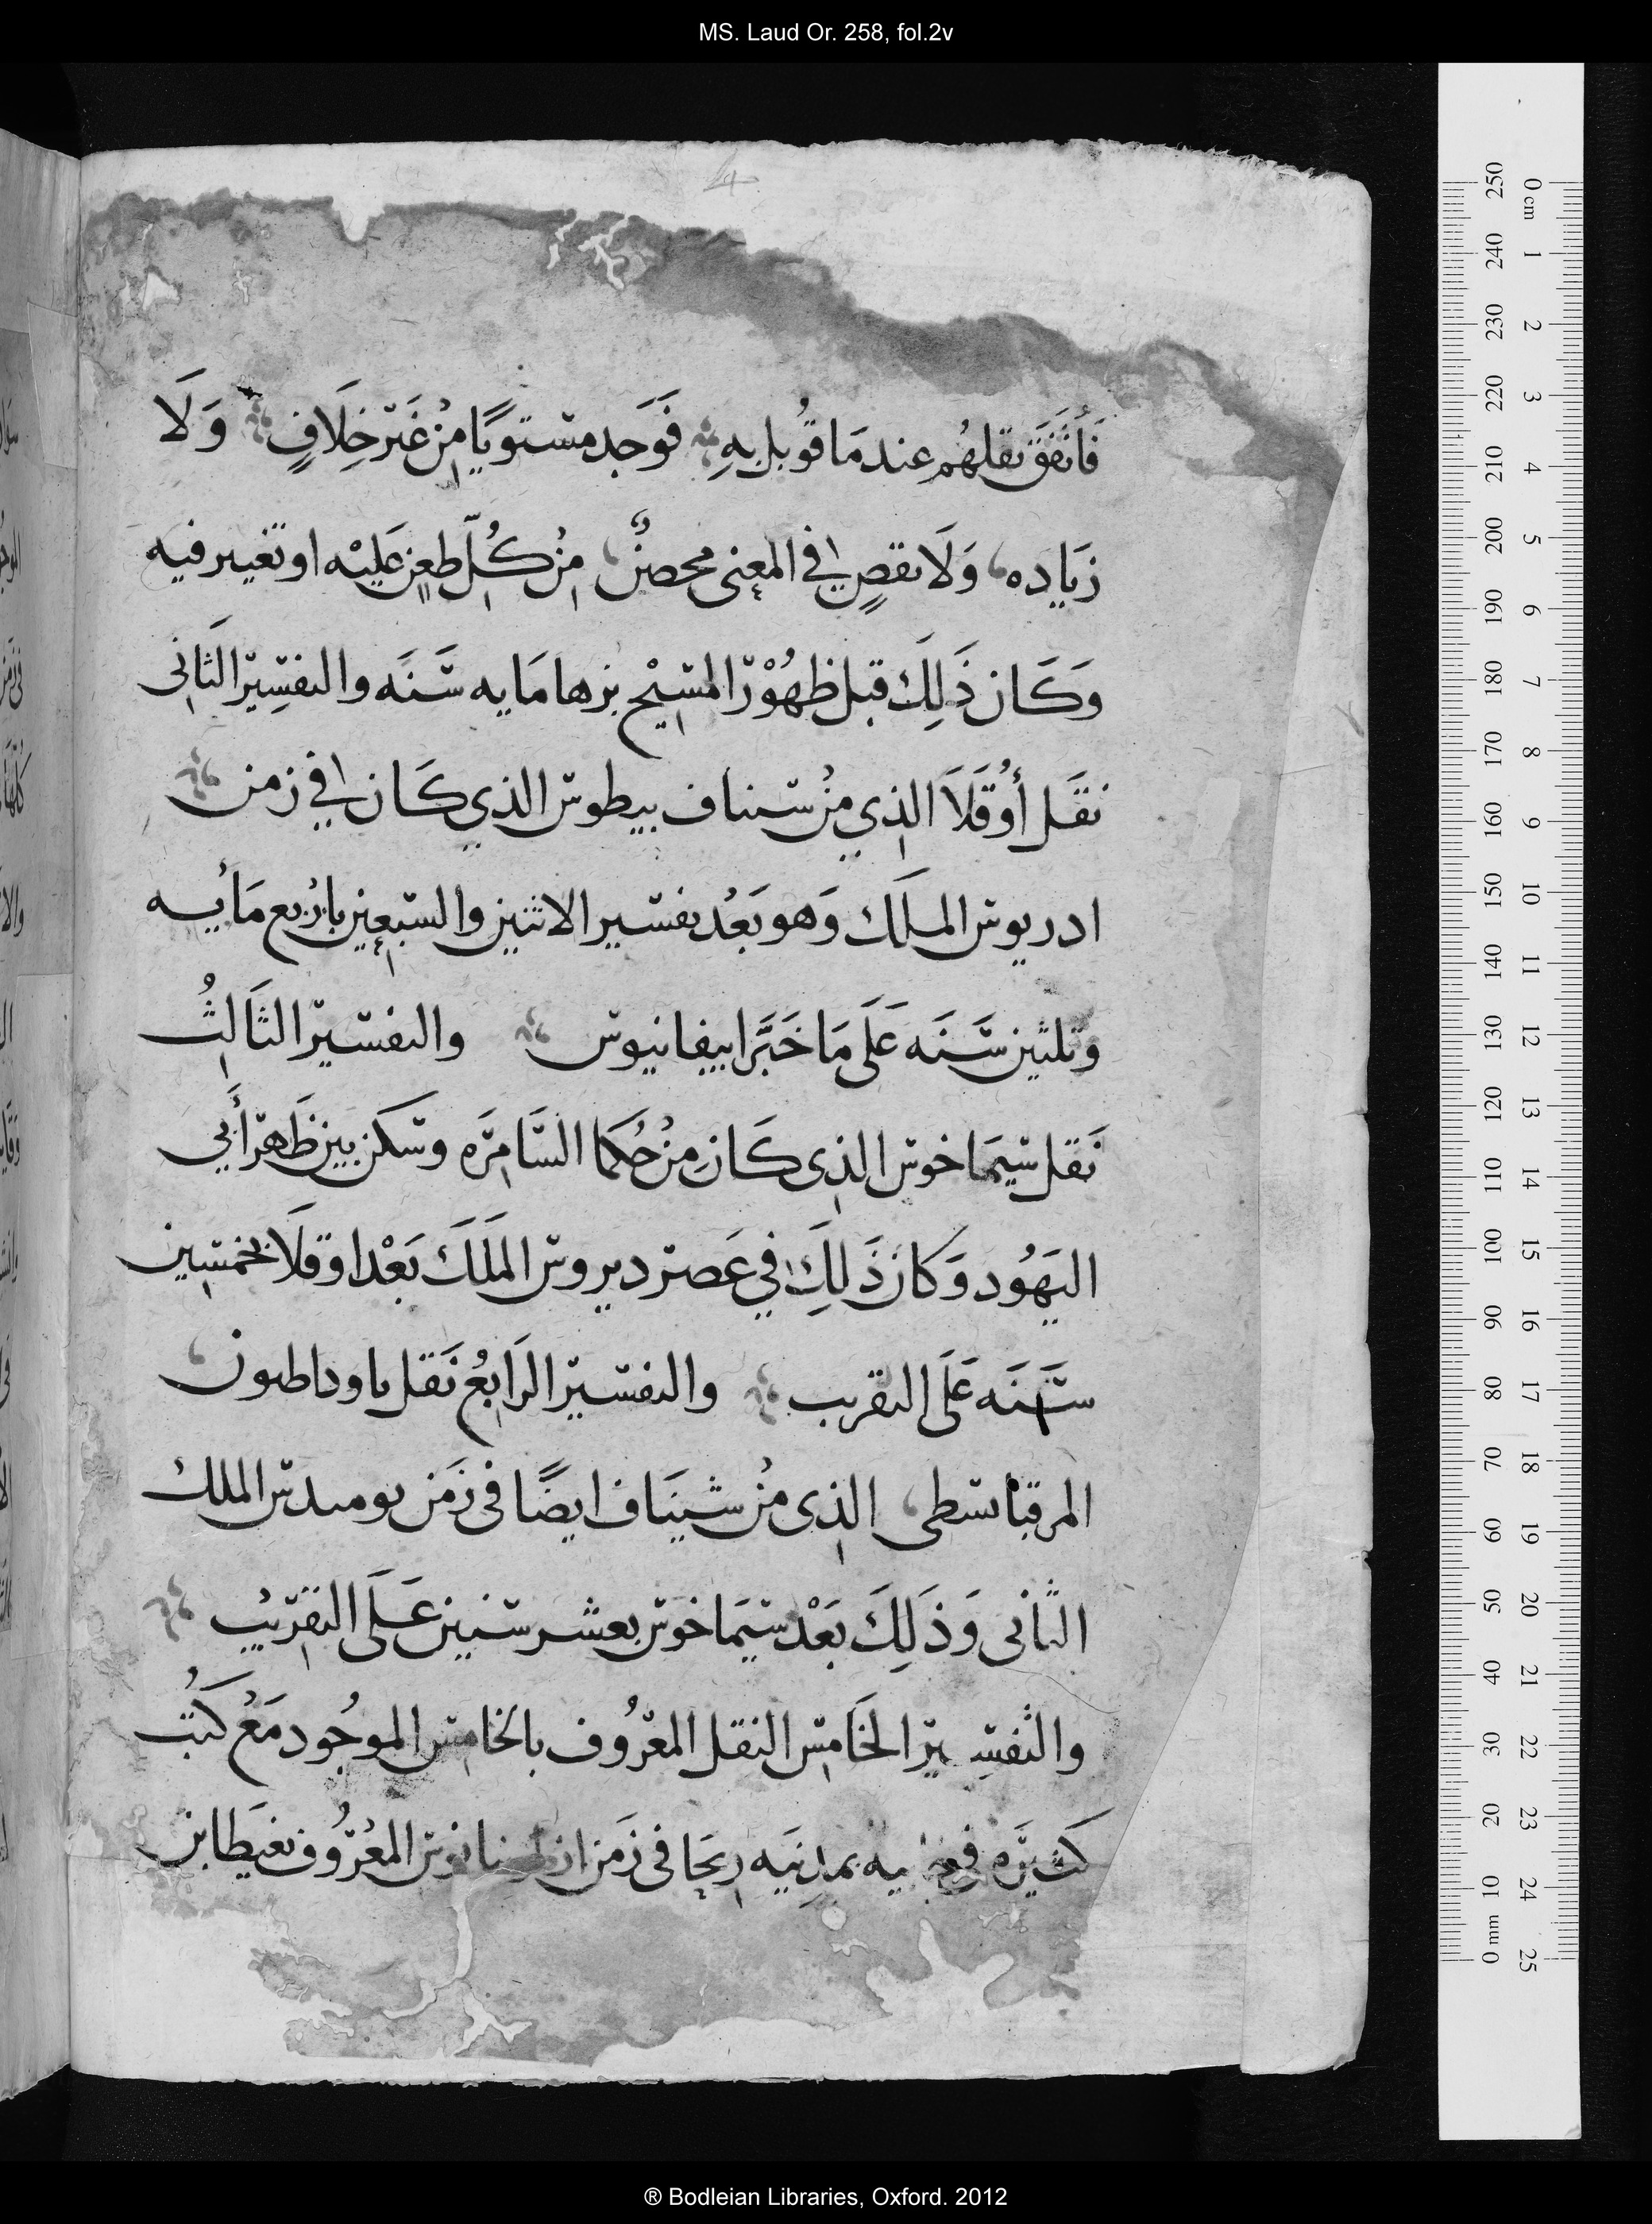 MS. Laud Or. 258, fol.2v
4
فَاتفَقَ نقلهُم عند مَا قُوبل بهِ فَوَجد مستويًا مِنْ غَير خِلَافٍ وَلَا
زيَاده وَلَا نقصٍ في المعنى محصنٌ مِنْ كُلّ طعنٍ عَليْه او تغيير فيه
وَكَان ذَلِكَ قبل ظهُوْر المسِيْح بزها مَايه سَنَه والتفسِير الثَانى
نقَل أوُقَلَا الذي مِنْ سناف بيطوس الذي كَان في زمن
ادريوس الملَك وَهو بَعْد تفسير الاثنين والسبعين باربع مَايُه
وثلثين سَنَه عَلَى مَا خَبَّر ابيفانيوس والتفسير الثَالثُ
نَقل سيمَاخوس الذى كَان مِنْ حُكما السَامرَه وسَكن بين ظَهر أَبي
اليَهُود وَكان ذَلِكَ في عَصر ديروس الملَكَ بَعْد اوقلَا بخمسِين
سَنَه عَلَى التقريب والتفسير الرَابعُ نَقل ثاوداطيون
المرقيانسطى الذى مِنْ سينَاف ايضًا فى زَمَن يوميدس الملك
الثانى وَذَلِكَ بَعْد سيمَاخوس بعشر سنين عَلَى التقريب
والتفسِير الخَامس النقل المعْرُوف بالخامس الموجُود مَعْ كتُب
كثيرَه فى بمدينَيه اريحَا فى زَمَن المعْرُوف بغيطا بن
0 cm 1 2 3 4 5 6 7 8 9 10 11 12 13 14 15 16 17 18 19 20 21 22 23 24 25
250 240 230 220 210 200 190 180 170 160 150 140 130 120 110 100 90 80 70 60 50 40 30 20 10 0 mm
® Bodleian Libraries, Oxford. 2012